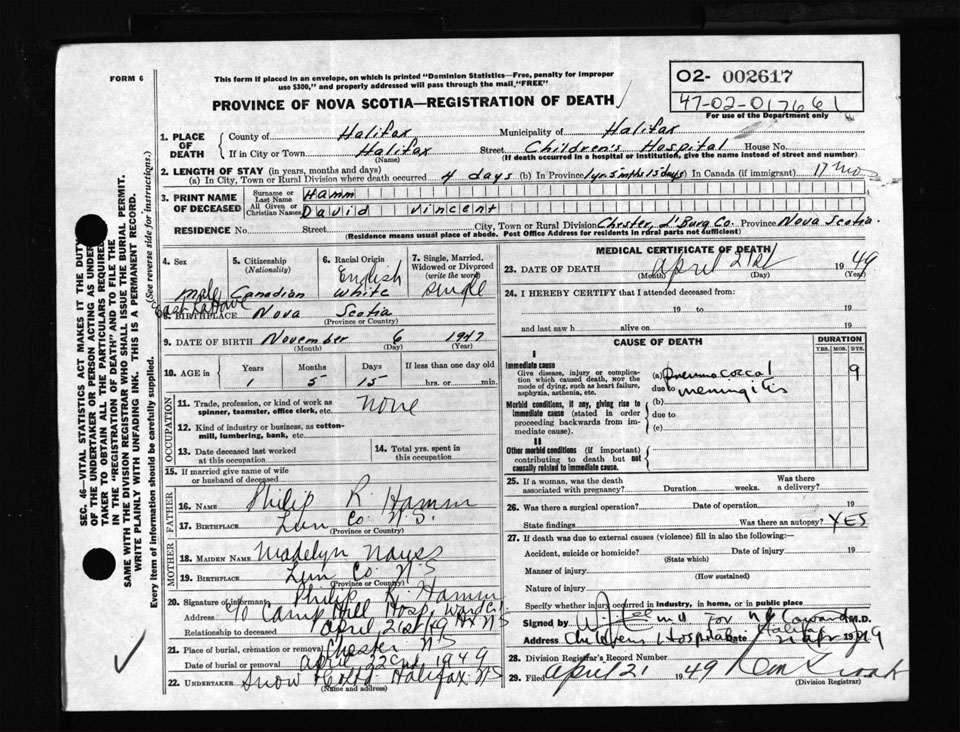 FORM 6
This form if placed in an envelope, on which is printed "Dominion Statistics—Free, penalty for improper
use $300," and properly addressed will pass through the mail "FREE"
PROVINCE OF NOVA SCOTIA—REGISTRATION OF DEATH
02- 002617
47-02-017661
For use of the Department only
1. PLACE OF DEATH
County of Halifax Municipality of Halifax
If in City or Town Halifax Street Children's Hospital House No.
(Name) (If death occurred in a hospital or institution, give the name instead of street and number)
2. LENGTH OF STAY (in years, months and days)
(a) In City, Town or Rural Division where death occurred 4 days (b) In Province 1yr. 5 mths 15 days (c) In Canada (if immigrant) 17 mos
3. PRINT NAME OF DECEASED
Surname or Last Name Hamm
All Given or Christian Names David Vincent
RESIDENCE No. Street City, Town or Rural Division Chester, L'Burg Co. Province Nova Scotia
(Residence means usual place of abode. Post Office Address for residents in rural parts not sufficient)
4. Sex male
5. Citizenship (Nationality) Canadian
6. Racial Origin English White
7. Single, Married, Widowed or Divorced (write the word) single
8. BIRTHPLACE East LaHave Nova Scotia
(Province or Country)
9. DATE OF BIRTH November 6 1947
(Month) (Day) (Year)
10. AGE in Years Months Days If less than one day old
1 5 15 hrs. or min.
OCCUPATION
11. Trade, profession, or kind of work as spinner, teamster, office clerk, etc. none
12. Kind of industry or business, as cotton-mill, lumbering, bank, etc.
13. Date deceased last worked at this occupation
14. Total yrs. spent in this occupation
15. If married give name of wife or husband of deceased
FATHER
16. Name Philip R. Hamm
17. Birthplace Lun Co. N.S.
(Province or Country)
MOTHER
18. Maiden Name Madelyn Nauss
19. Birthplace Lun Co. N.S
(Province or Country)
20. Signature of informant Philip R. Hamm
Address 70 Camp Hill Hosp. Ward C1
Relationship to deceased April 21st 49 Hx NS
21. Place of burial, cremation or removal Chester NS
Date of burial or removal April 22nd 1949
22. UNDERTAKER Snow Halifax NS
(Name and address)
MEDICAL CERTIFICATE OF DEATH
23. DATE OF DEATH April 21st 1949
(Month) (Day) (Year)
24. I HEREBY CERTIFY that I attended deceased from:
19 to 19
and last saw h alive on 19
CAUSE OF DEATH
DURATION
YRS. MOS. DYS.
I
Immediate cause
Give disease, injury or complication which caused death, NOT the mode of dying, such as heart failure, asphyxia, asthenia, etc.
(a) Pneumococcal 9
due to meningitis
Morbid conditions, if any, giving rise to immediate cause (stated in order proceeding backwards from immediate cause).
(b)
due to
(c)
II
Other morbid conditions (if important) contributing to death but not causally related to immediate cause.
25. If a woman, was the death associated with pregnancy? Duration weeks. Was there a delivery?
26. Was there a surgical operation? Date of operation 19
State findings Was there an autopsy? YES
27. If death was due to external causes (violence) fill in also the following:
Accident, suicide or homicide? Date of injury 19
(State which)
Manner of injury
(How sustained)
Nature of injury
Specify whether injury occurred in industry, in home, or in public place
Signed by For N B Coward M.D.
Address Childrens Hospital Halifax Date 21 Apr 1949
28. Division Registrar's Record Number
29. Filed April 21 1949
(Division Registrar)
SEC. 46—VITAL STATISTICS ACT MAKES IT THE DUTY
OF THE UNDERTAKER OR PERSON ACTING AS UNDER-
TAKER TO OBTAIN ALL THE PARTICULARS REQUIRED
IN THE "REGISTRATION OF DEATH" AND TO FILE THE
SAME WITH THE DIVISION REGISTRAR WHO SHALL ISSUE THE BURIAL PERMIT.
WRITE PLAINLY WITH UNFADING INK. THIS IS A PERMANENT RECORD.
Every item of information should be carefully supplied. (See reverse side for instructions.)